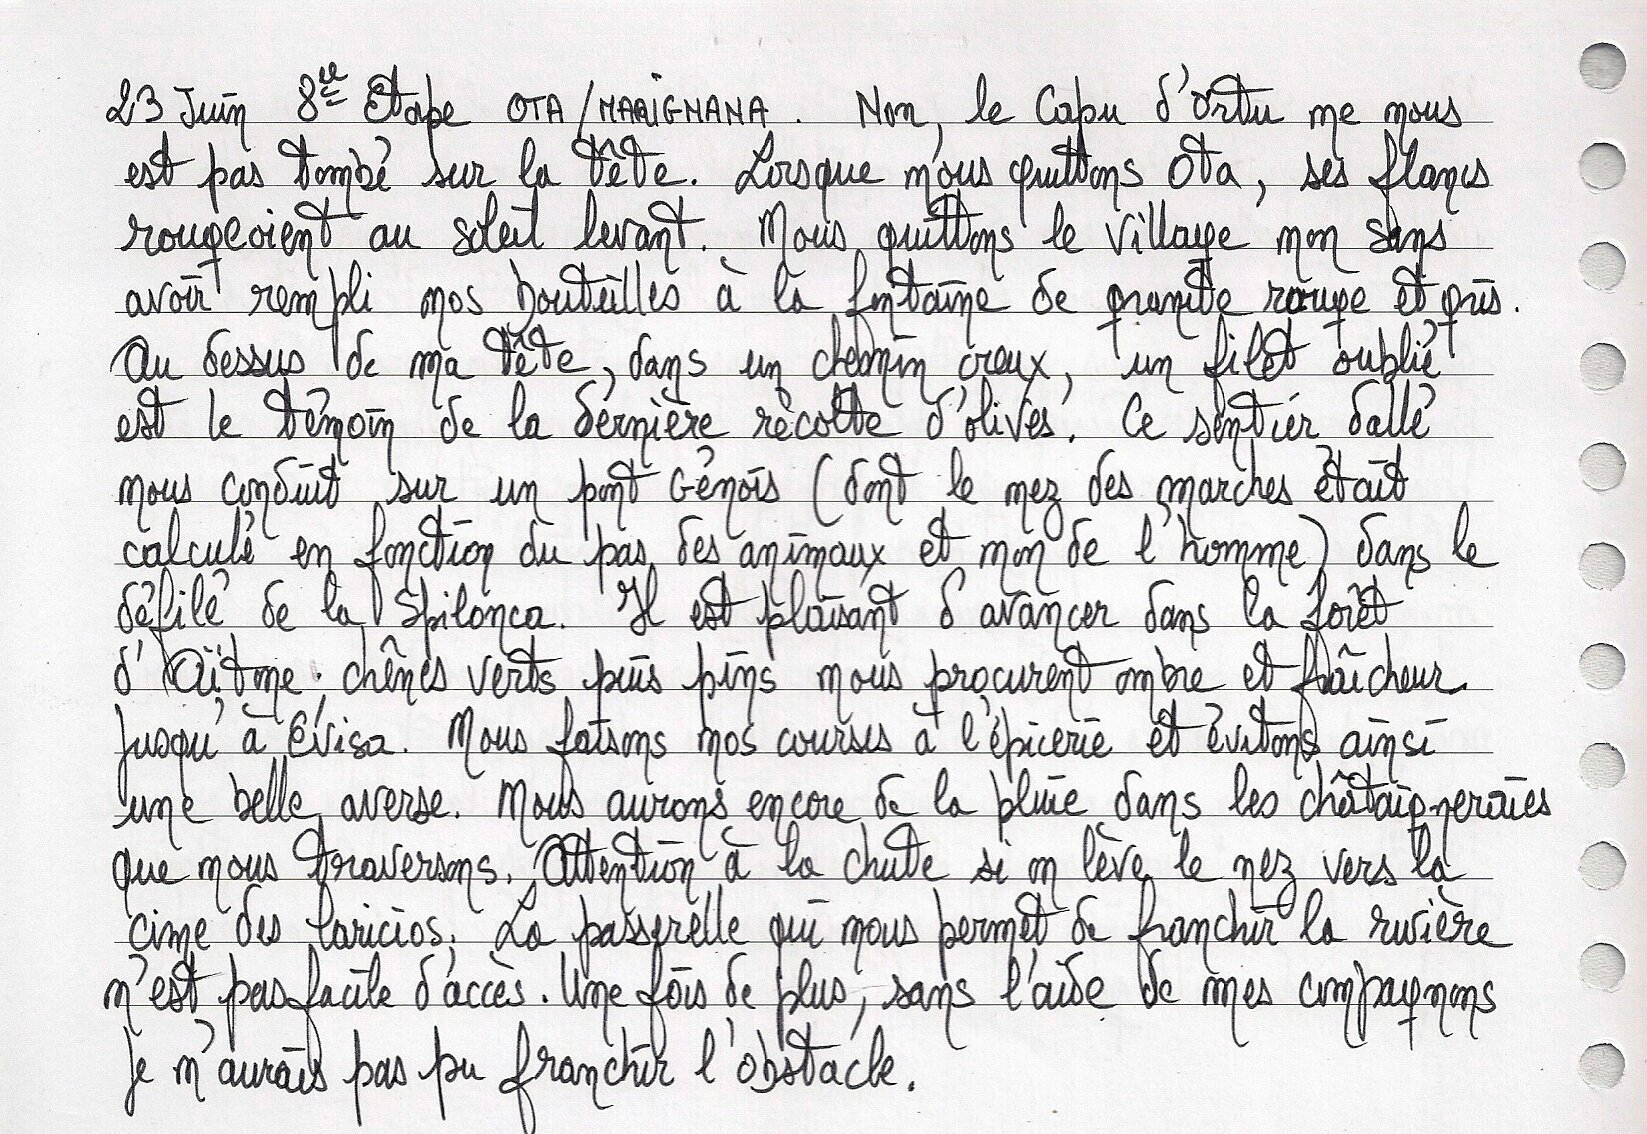 23 Juin 8ème Etape OTA/MARIGNANA. Non, le Capu d'Ortu ne nous
est pas tombé sur la tête. Lorsque nous quittons Ota, ses flancs
rougeoient au soleil levant. Nous quittons le village non sans
avoir rempli nos bouteilles à la fontaine de granite rouge et gris.
Au dessus de ma tête, dans un chemin creux, un filet oublié
est le témoin de la dernière récolte d'olives. Ce sentier dallé
nous conduit sur un pont Génois (dont le nez des marches était
calculé en fonction du pas des animaux et non de l'homme) dans le
défilé de la Spilonca. Il est plaisant d'avancer dans la forêt
d'Aïtone ; chênes verts puis pins nous procurent ombre et fraîcheur
jusqu'à Évisa. Nous faisons nos courses à l'épicerie et évitons ainsi
une belle averse. Nous aurons encore de la pluie dans les châtaigneraies
que nous traversons. Attention à la chute si on lève le nez vers la
cime des laricios. La passerelle qui nous permet de franchir la rivière
n'est pas facile d'accès. Une fois de plus, sans l'aide de mes compagnons
je n'aurais pas pu franchir l'obstacle.